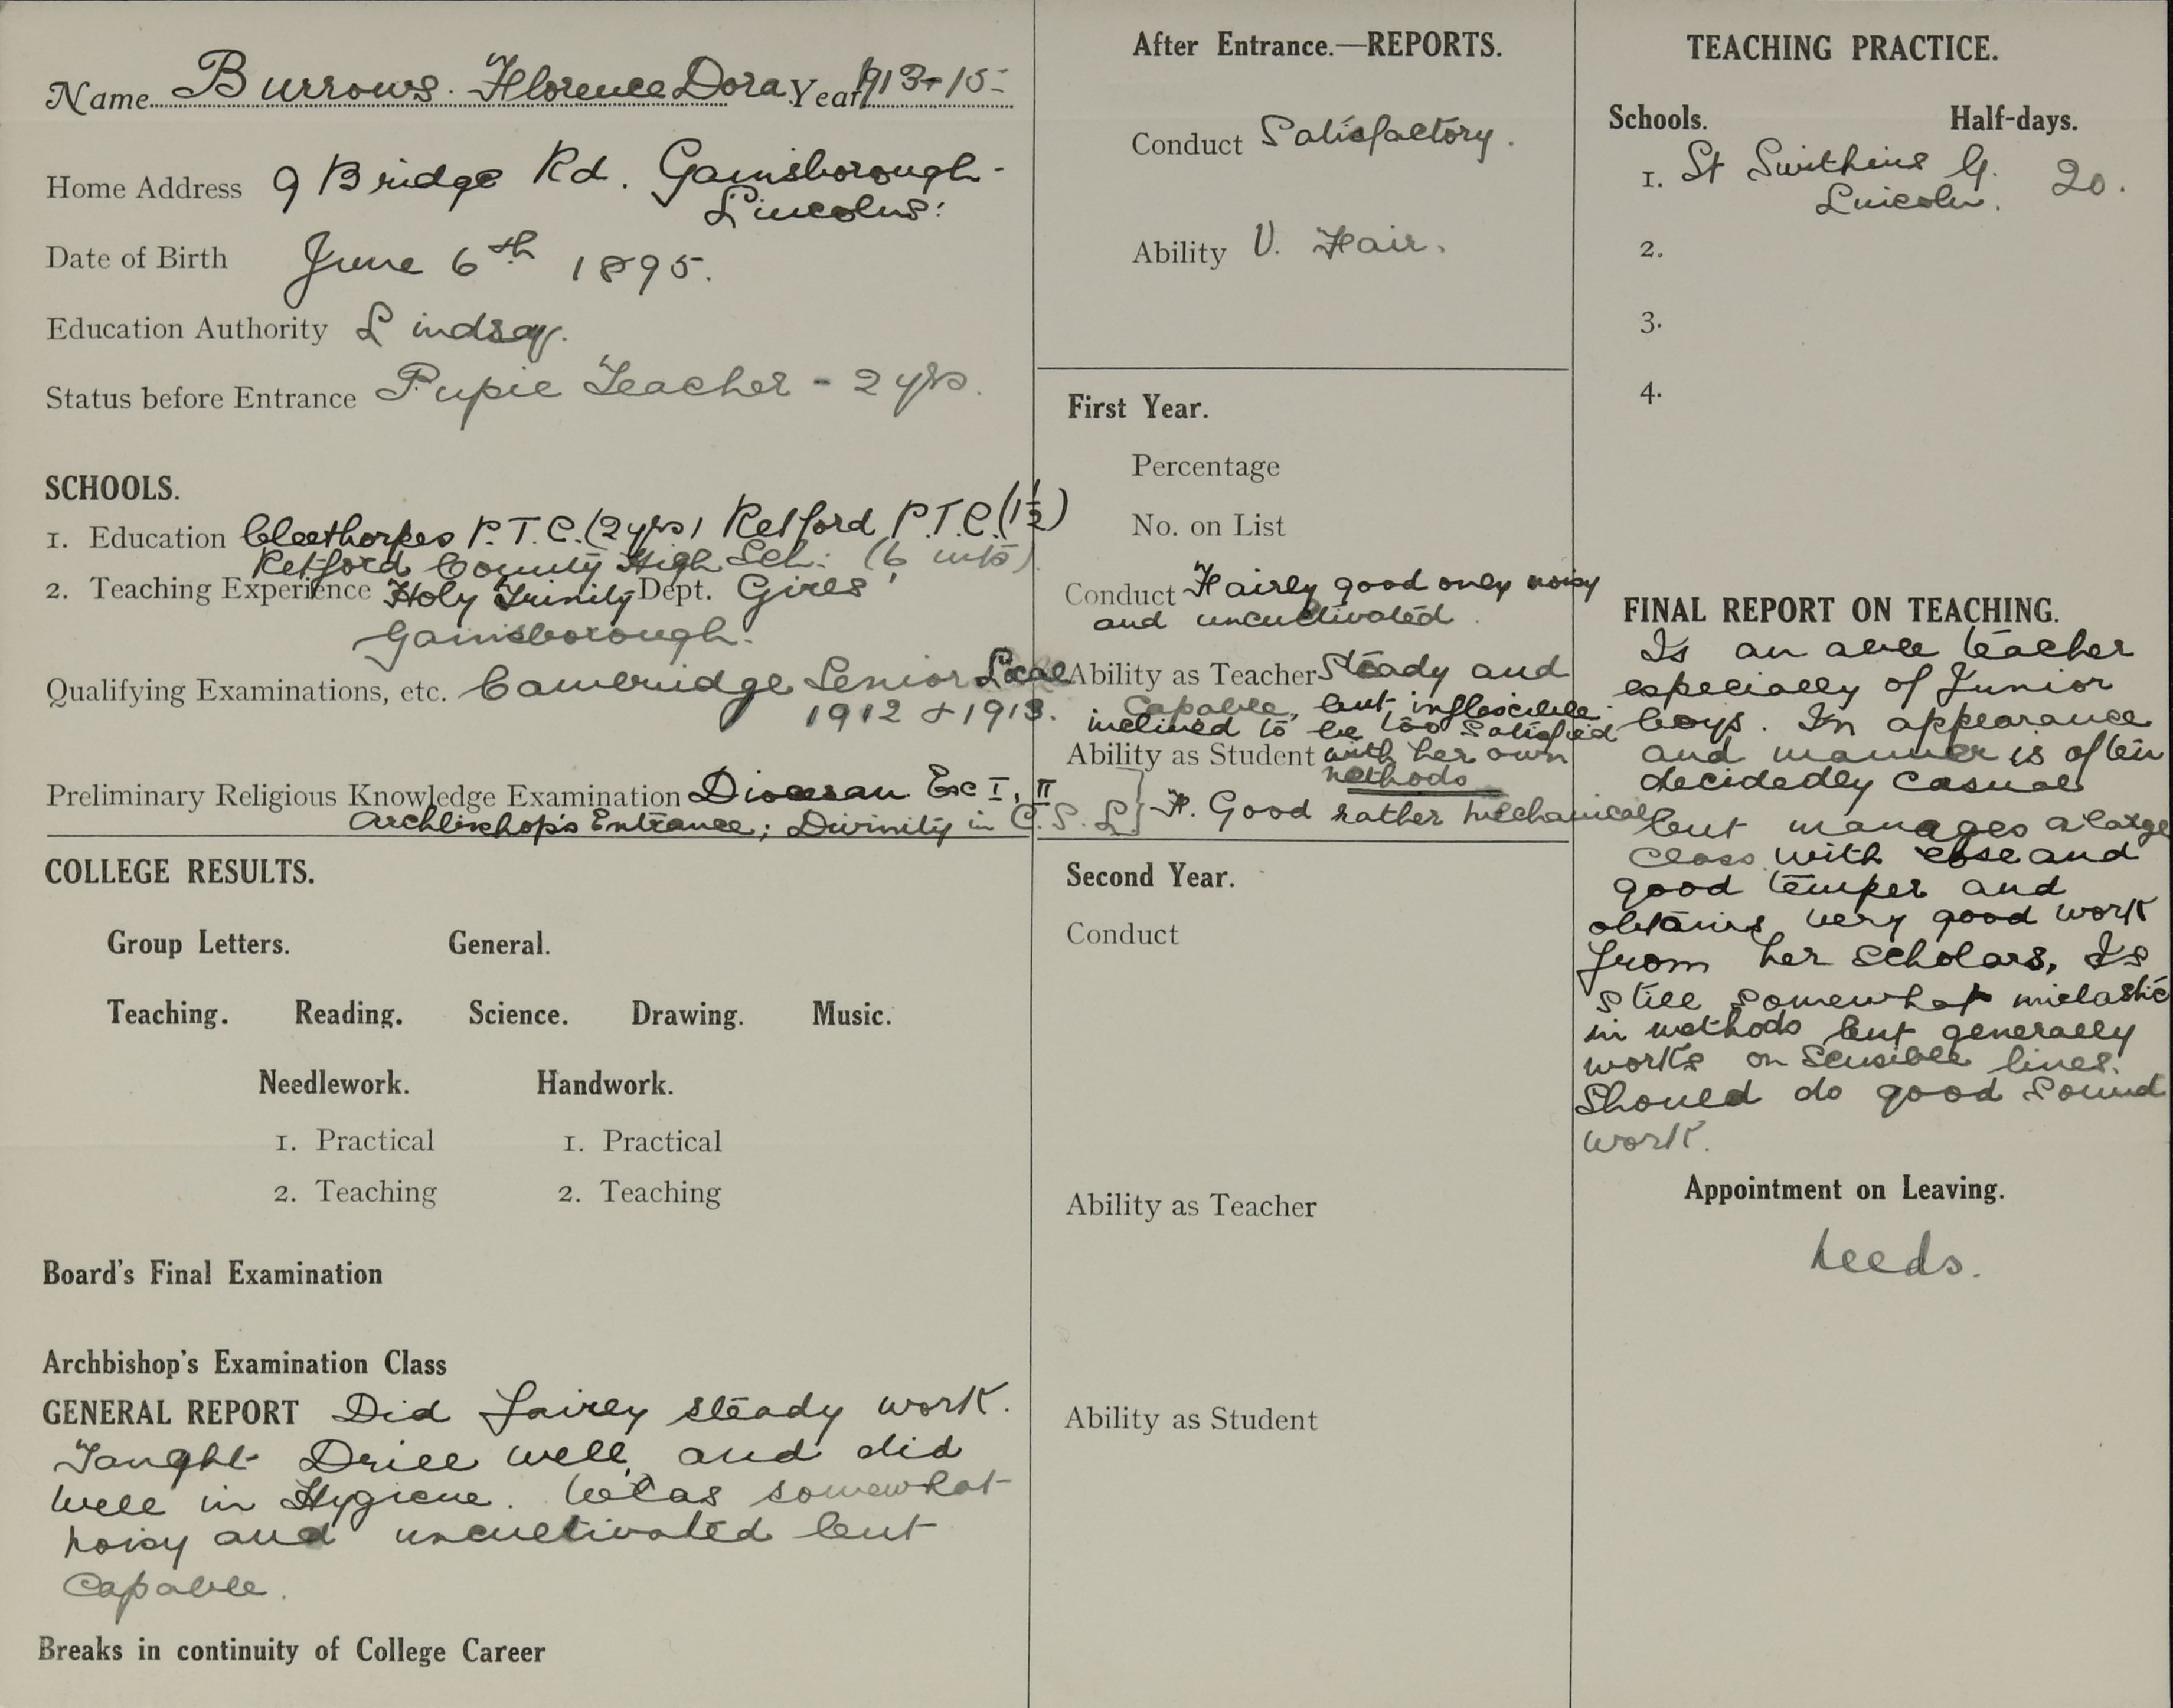 Name Burrows. Florence Dora Year 1913-15
Home Address 9 Bridge Rd. Gainsborough
Lincolns:
Date of Birth June 6th 1895.
Education Authority Lindsey.
Status before Entrance Pupil Teacher - 2 yrs.
SCHOOLS.
1. Education Cleethorpes P.T.C. (2 yrs) Retford P.T.C. (1½)
Retford County High Sch: (6 mts)
2. Teaching Experience Holy Trinity Dept. Girls'
Gainsborough.
Qualifying Examinations, etc. Cambridge Senior Local
1912 & 1913.
Preliminary Religious Knowledge Examination Diocesan Ex I, II
Archbishop's Entrance; Divinity in C.S.L.
COLLEGE RESULTS.
Group Letters. General.
Teaching. Reading. Science. Drawing. Music.
Needlework. Handwork.
1. Practical 1. Practical
2. Teaching 2. Teaching
Board's Final Examination
Archbishop's Examination Class
GENERAL REPORT Did fairly steady work.
Taught Drill well, and did
well in Hygiene. Was somewhat
noisy and uncultivated but
capable.
Breaks in continuity of College Career
After Entrance.—REPORTS.
Conduct Satisfactory.
Ability V. Fair.
First Year.
Percentage
No. on List
Conduct Fairly good only noisy
and uncultivated.
Ability as Teacher Steady and
capable, but inflexible
inclined to be too satisfied
Ability as Student with her own
methods
F. Good rather mechanical
Second Year.
Conduct
Ability as Teacher
Ability as Student
TEACHING PRACTICE.
Schools. Half-days.
1. St Swithins G. 20.
Lincoln.
2.
3.
4.
FINAL REPORT ON TEACHING.
Is an able teacher
especially of Junior
boys. In appearance
and manner is often
decidedly casual
but manages a large
class with ease and
good temper and
obtains very good work
from her scholars, Is
still somewhat inelastic
in methods but generally
works on sensible lines.
Should do good sound
work.
Appointment on Leaving.
Leeds.